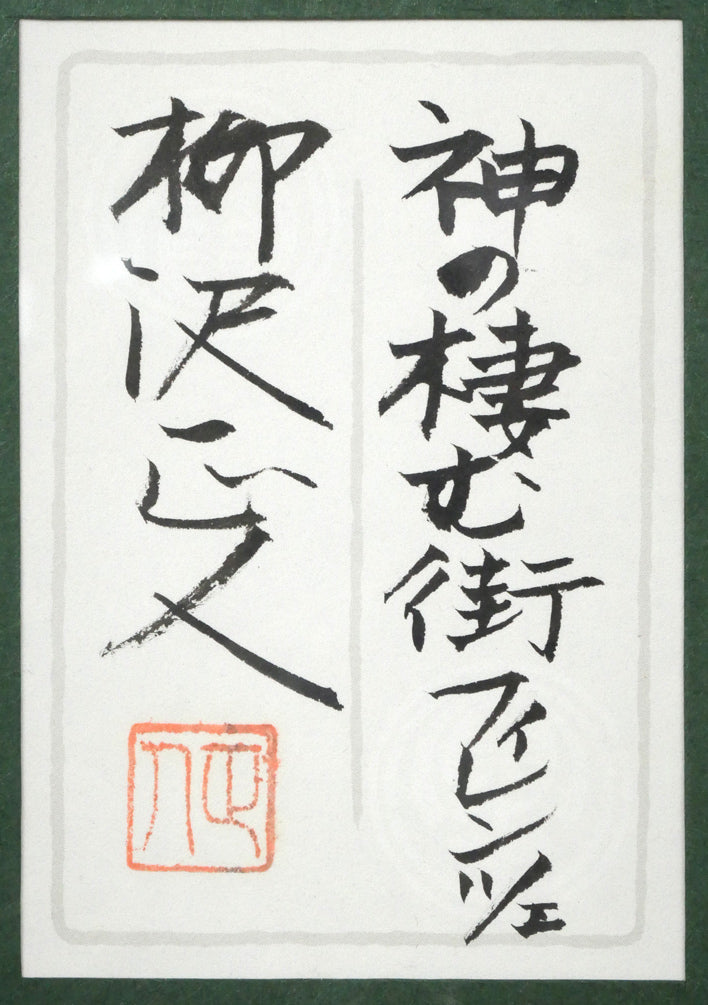 神の棲む街フィレンツェ
柳沢正人
正人